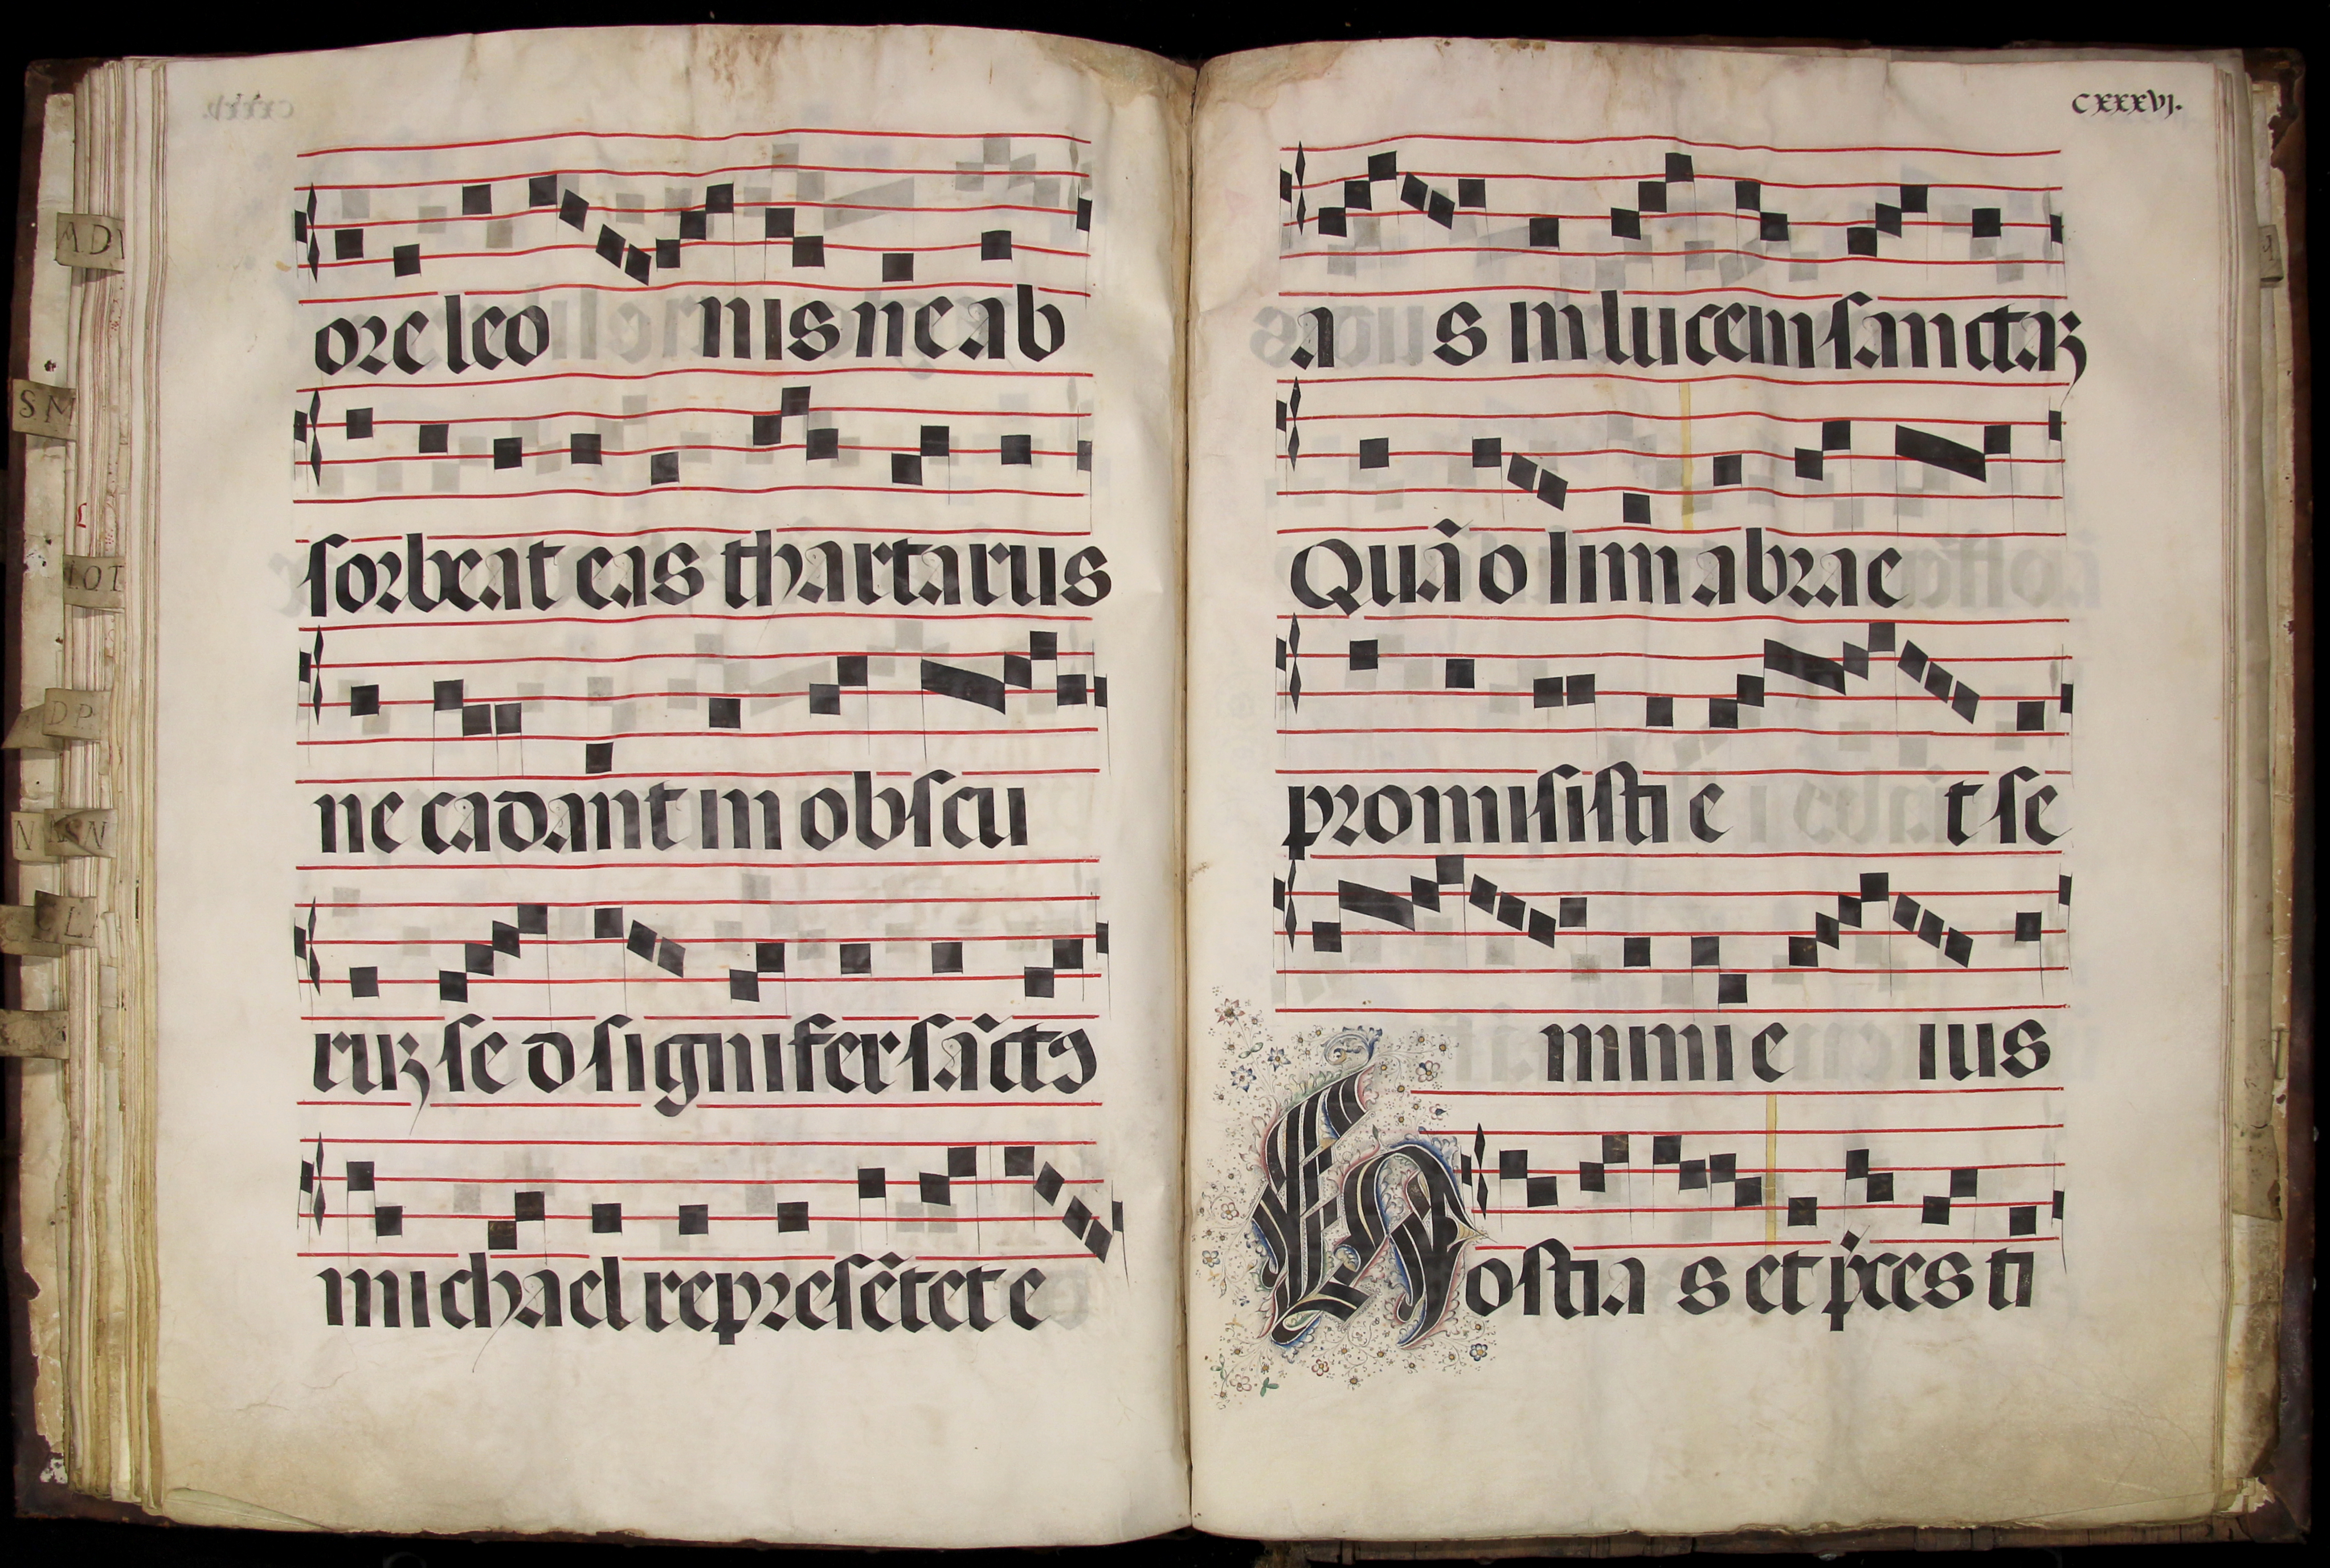 ore leo nis ne ab
sorbeat eas thartarus
ne cadant in obscu
ruꝝ se d signifer sāctꝰ
michael represētet e
CXXXVJ.
a s in lucem sanctaꝝ
Quā o lim abrae
promisisti e t se
mini e ius
Hostia s et p̍ces ti
AD
SM
LOT
DP
N
SN
L